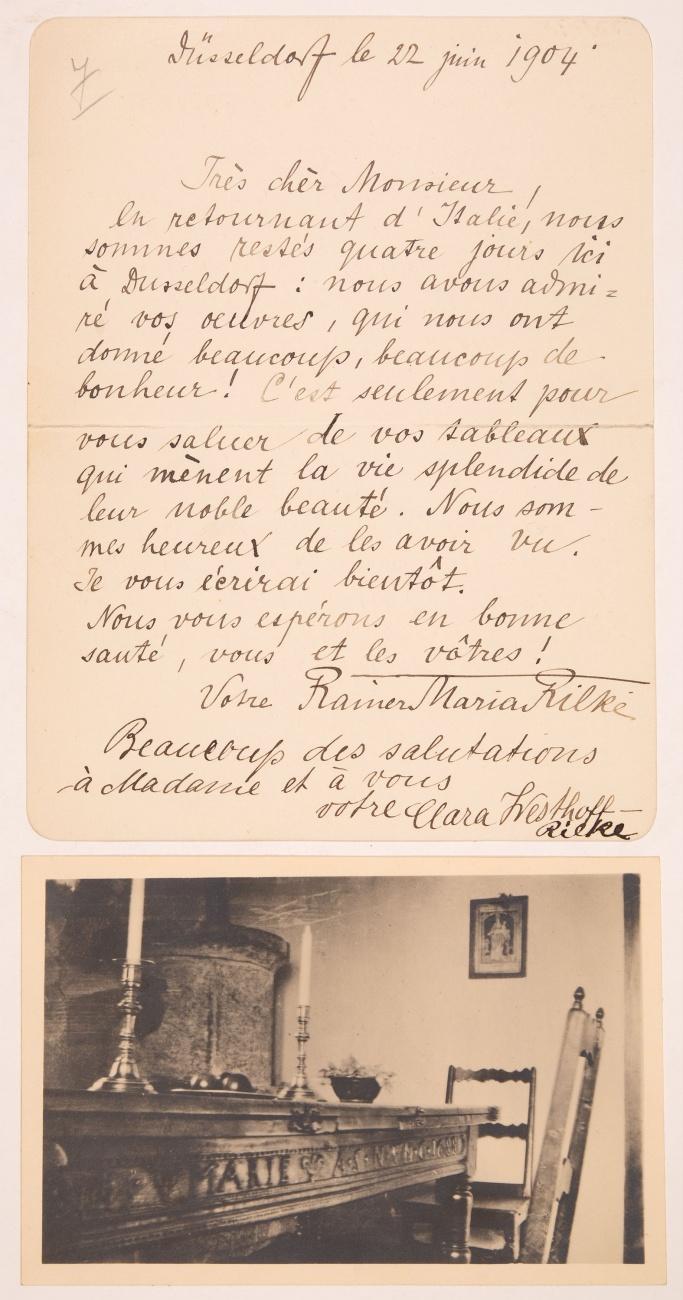 Düsseldorf le 22 juin 1904.
7
Très chèr Monsieur,
En retournant d'Italie, nous
sommes restés quatre jours ici
à Dusseldorf : nous avons admi=
ré vos oeuvres, qui nous ont
donné beaucoup, beaucoup de
bonheur! C'est seulement pour
vous saluer de vos tableaux
qui mènent la vie splendide de
leur noble beauté. Nous som-
mes heureux de les avoir vu.
Je vous écrirai bientôt.
Nous vous espérons en bonne
santé, vous et les vôtres!
Votre Rainer Maria Rilke
Beaucoup des salutations
à Madame et à vous
votre Clara Westhoff-
Rilke
MARIE